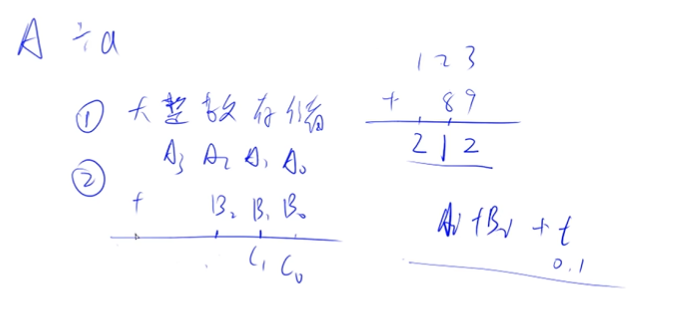 A ÷ a
① 大整数存储
② A₃ A₂ A₁ A₀
+ B₂ B₁ B₀
C₁ C₀
1 2 3
+ 8 9
2 1 2
Aᵢ + Bᵢ + t
0.1